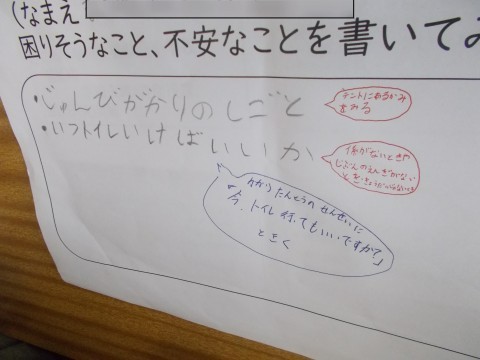 (なまえ
困りそうなこと、不安なことを書いてみ
・じゅんびがかりのしごと
テントにあるかみ
をみる
・いつトイレいけばいいか
係がないときや
じぶんの
かかりたんとうのせんせいに
「今、トイレ行ってもいいですか?」
ときく